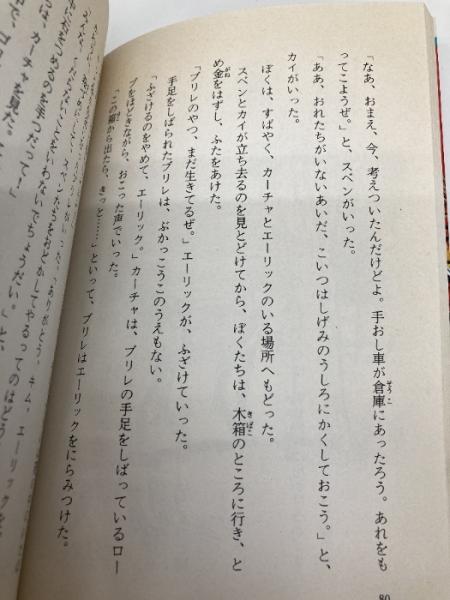 「なあ、おまえ、今、考えついたんだけどよ。手おし車が倉庫にあったろう。あれをも
ってこようぜ。」と、スベンがいった。
「ああ、おれたちがいないあいだ、こいつはしげみのうしろにかくしておこう。」と、
カイがいった。
ぼくは、すばやく、カーチャとエーリックのいる場所へもどった。
スベンとカイが立ち去るのを見とどけてから、ぼくたちは、木箱のところに行き、と
め金をはずし、ふたをあけた。
「ブリレのやつ、まだ生きてるぜ。」エーリックが、ふざけていった。
手足をしばられたブリレは、ぶかっこうこのうえもない。
「ふざけるのをやめて、エーリック。」カーチャは、ブリレの手足をしばっているロー
プをほどきながら、おこった声でいった。
「この箱から出たら、きっと……」といって、ブリレはエーリックをにらみつけた。
「ありがとう、キム、エーリックを
スベンたちをおどかしてやるってのはどう
なことをいわないでちょうだい。」と、
こめるのを手つだって！
は、カーチャを見た。
80